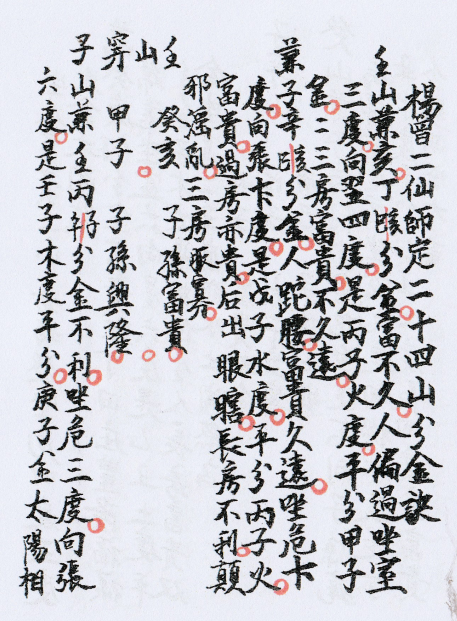 楊曾二仙師定二十四山分金訣
壬山兼亥丁亥分金富不久人偏過坐室
三度向翌四度是丙子火度平分甲子
金一二三房富貴不久遠
兼子辛亥分金人跎腰富貴久遠坐危卞
度向張卞度是戊子水度平分丙子火
富貴過房亦貴后出眼瞎長房不利顛
邪滛乱三房承寡
壬 癸亥 子孫富貴
山
穽 甲子 子孫興隆
子山兼壬丙子分金不利坐危三度向張
六度是壬子木度平分庚子金太陽相